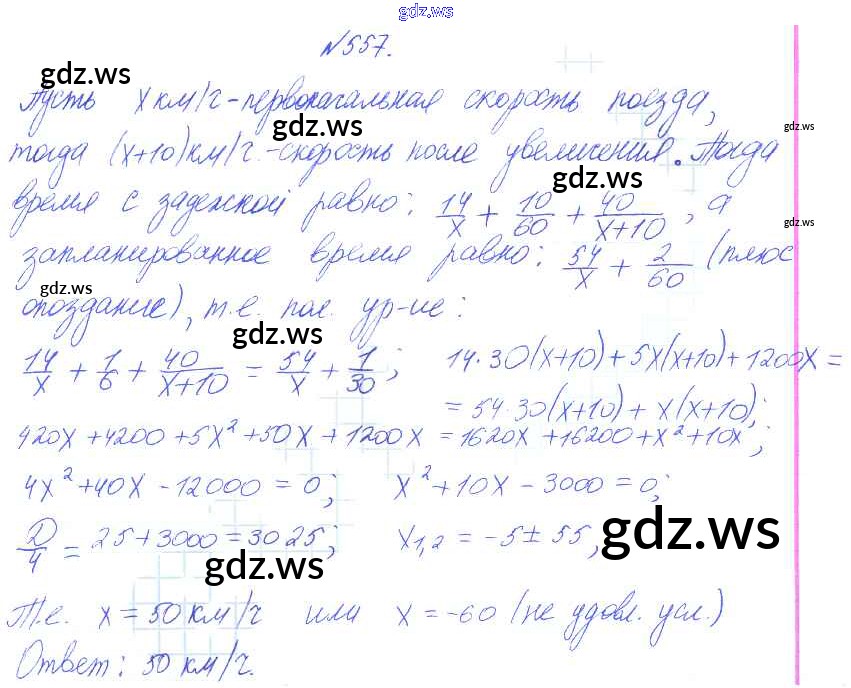 gdz.ws
№557.
gdz.ws
Пусть x км/ч - первоначальная скорость поезда,
gdz.ws
gdz.ws
тогда (x+10) км/ч. - скорость после увеличения. Тогда
gdz.ws
время с задержкой равно: 14/x + 10/60 + 40/(x+10), а
gdz.ws
запланированное время равно: 54/x + 2/60 (плюс
gdz.ws
опоздание), т.е. пол. ур-ие:
gdz.ws
14/x + 1/6 + 40/(x+10) = 54/x + 1/30; 14·30(x+10)+5x(x+10)+1200x=
=54·30(x+10)+x(x+10);
420x+4200+5x²+50x+1200x=1620x+16200+x²+10x;
4x²+40x-12000=0; x²+10x-3000=0;
D/4=25+3000=3025; x1,2=-5±55,
gdz.ws
gdz.ws
Т.е. x=50 км/ч или x=-60 (не удовл. усл.)
Ответ: 50 км/ч.